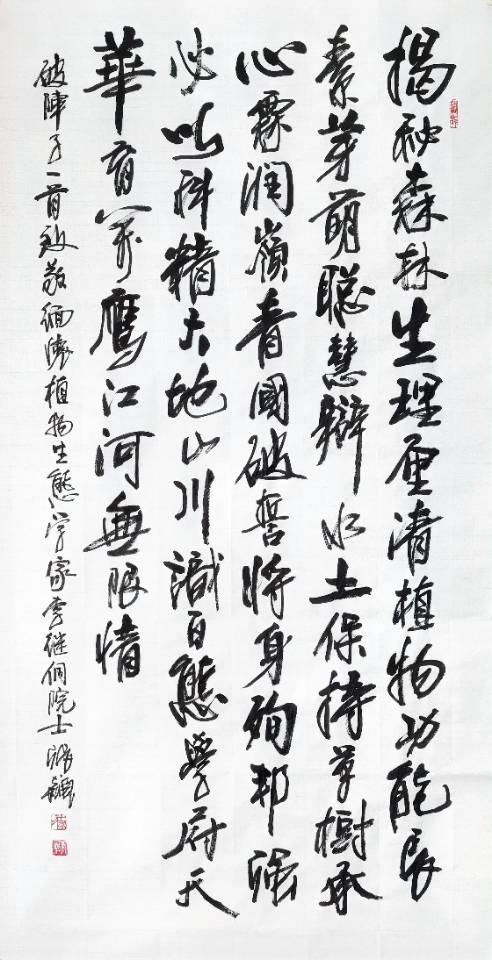 揭秘森林生理厘清植物功能辰
素芽萌聰慧辯水土保持草樹承
心霖潤嶺青國破誓將身殉邦强
必以科精大地山川識百態學府天
華育萬鷹江河無限情
破陣子一首致敬缅懷植物生態学家李继侗院士